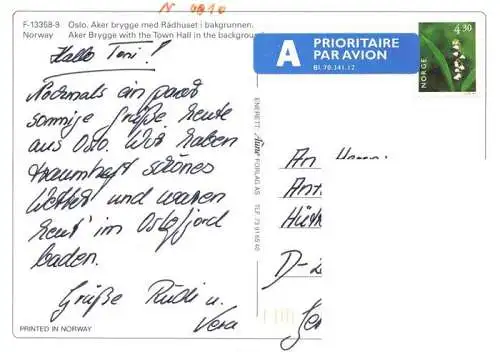 N 0810
F-13358-9 Oslo. Aker brygge med Rådhuset i bakgrunnen.
Norway Aker Brygge with the Town Hall in the background
A PRIORITAIRE
PAR AVION
Bl. 70.341.12
4.30
NORGE
Hallo Toni!
Nochmals ein paar
sonnige Grüße heute
aus Oslo. Wir haben
traumhaft schönes
Wetter und waren
heut' im Oslofjord
baden.
Grüße Rudi u.
Vera
ENERETT: Aune FORLAG AS TLF. 73 91 65 40
An
D-
PRINTED IN NORWAY